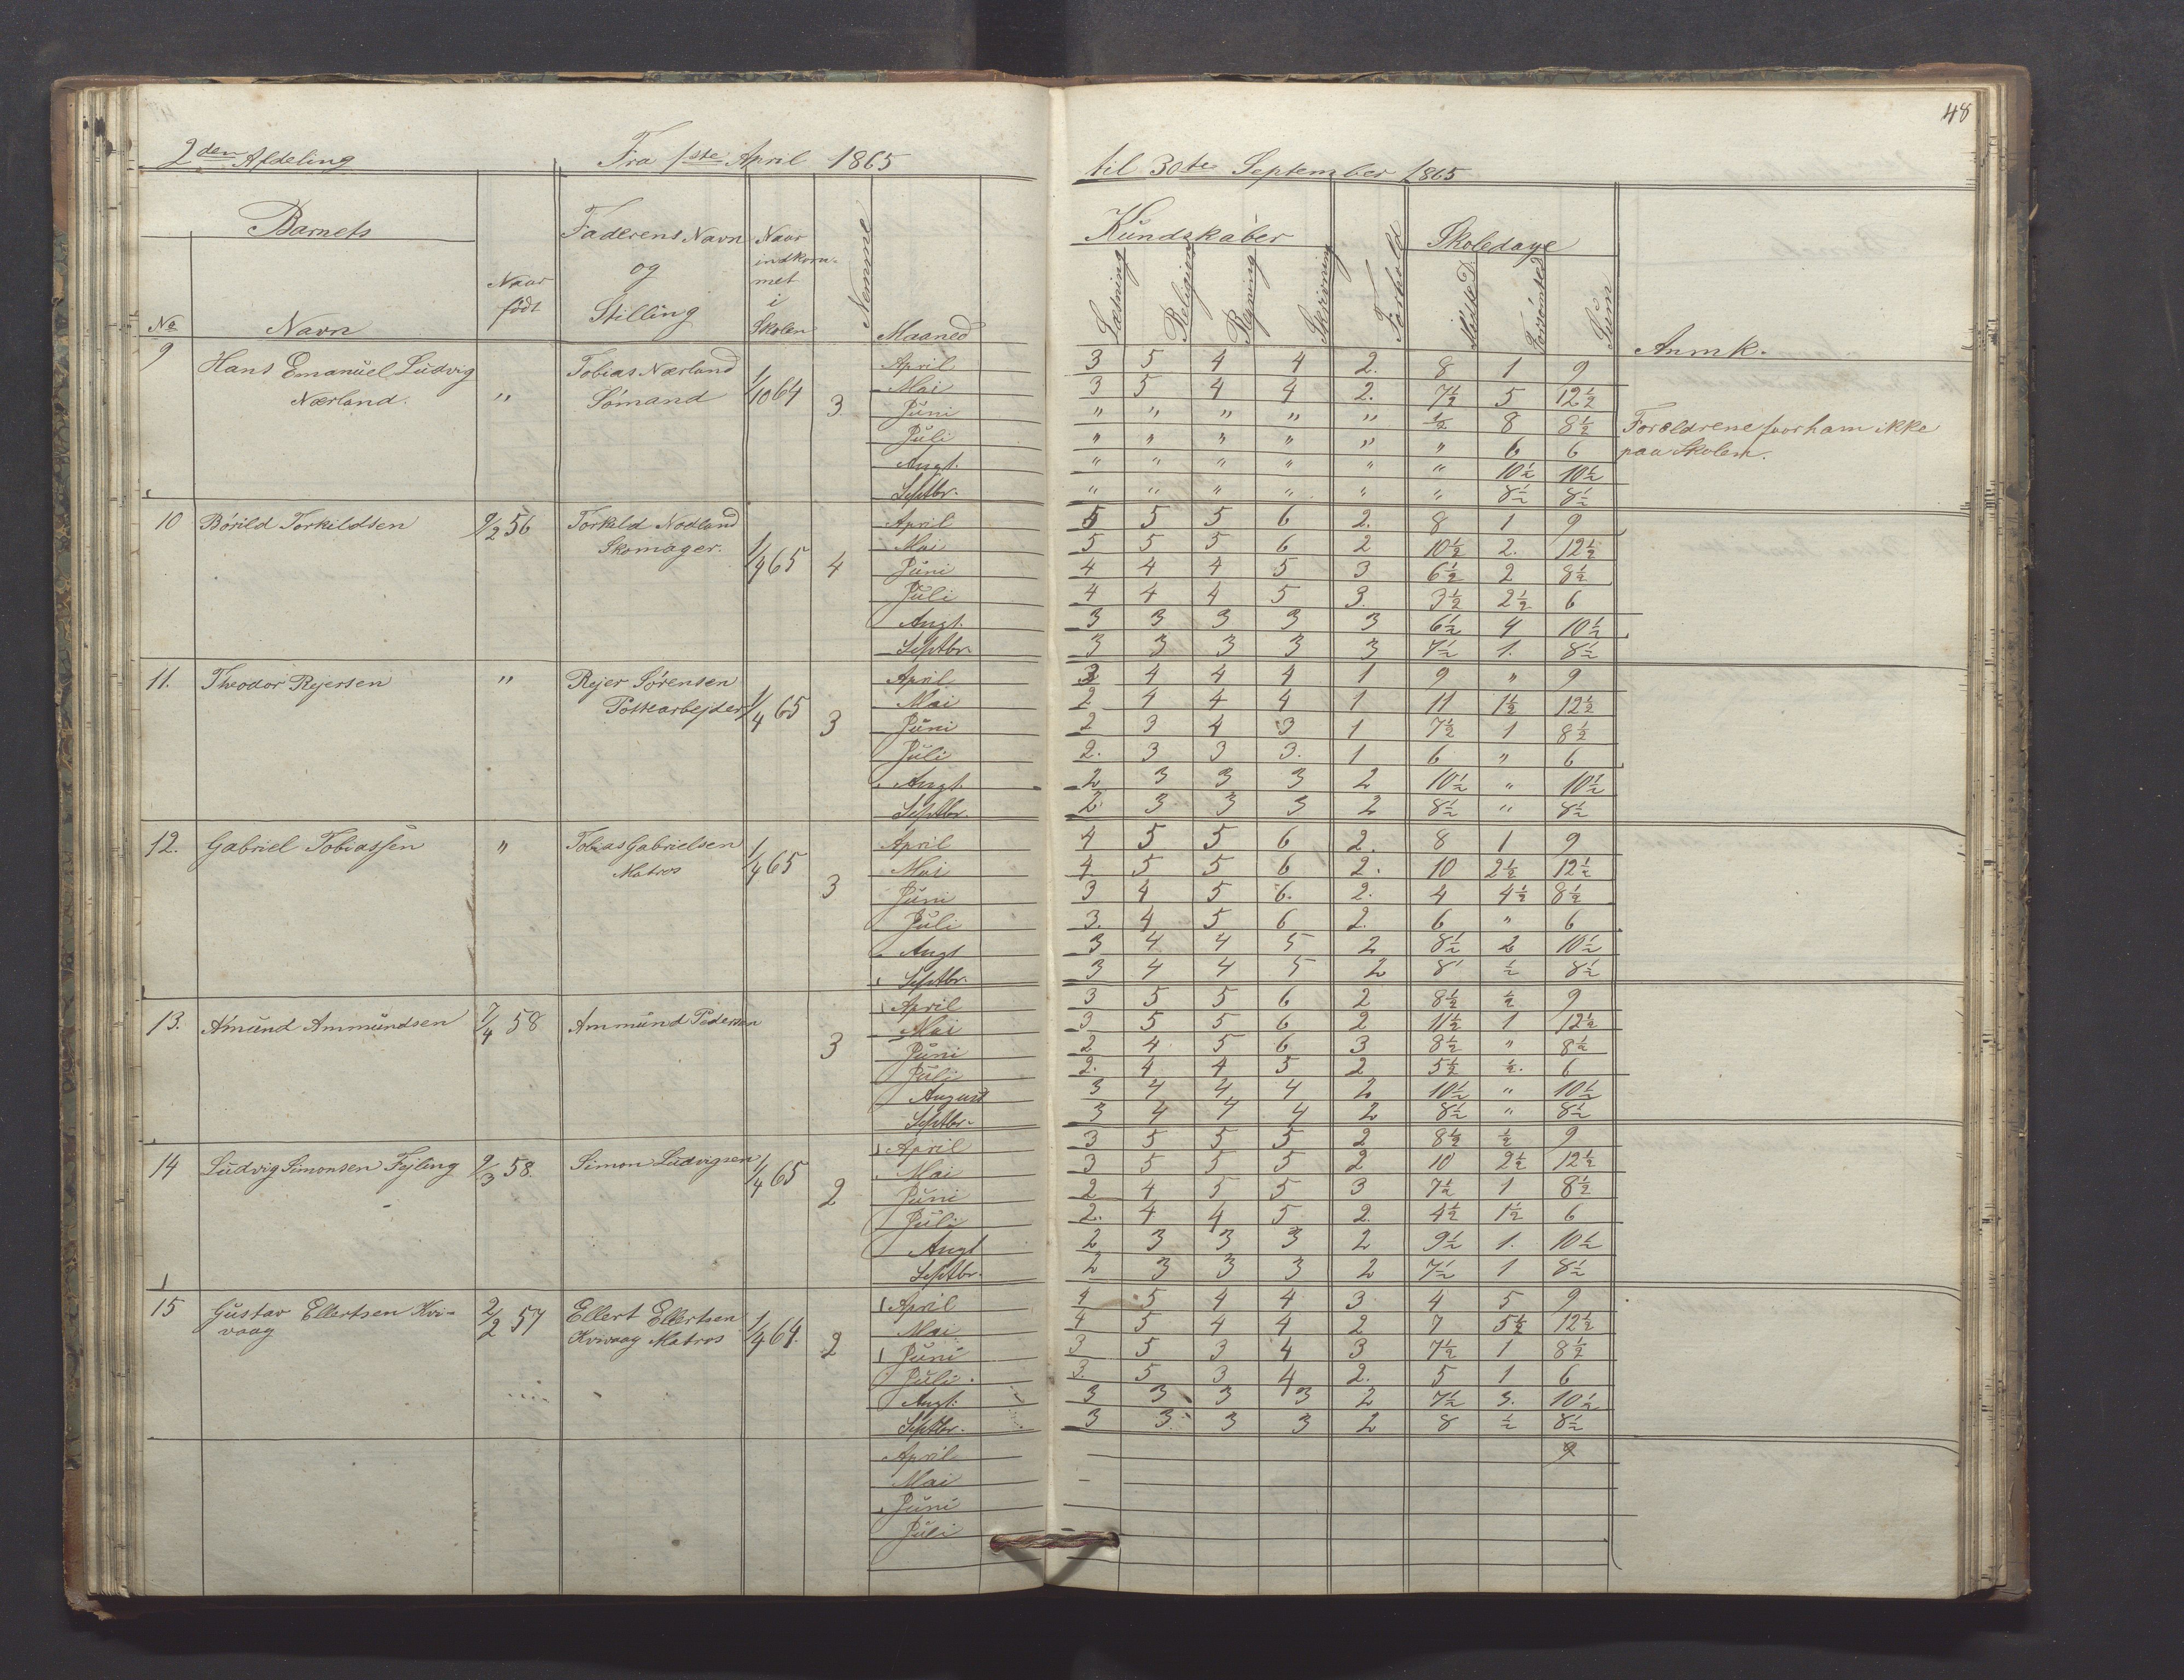 48
2den Afdeling Fra 1ste April 1865 til 30te September 1865
Barnets Naar født Faderens Navn og Stilling Naar indkommet i Skolen Nemme Maaned Kundskaber Forhold Skoledage Anmk.
No Navn Læsning Religion Regning Skrivning Mødte D. Forsømte D. Sum
9 Hans Emanuel Ludvig Tobias Nærland 1/10 64 3. April 3 5 4 4 2. 8 1 9
Nærland. " Sømand Mai 3 5 4 4 2. 7½ 5 12½
Juni " " " " " ½ 8 8½ Forældrene faar ham ikke
Juli " " " " " " 6 6 paa Skolen.
Augt. " " " " " " 10½ 10½
Septbr. " " " " " " 8½ 8½
10 Børild Torkildsen 9/2 56 Torkild Nodland 1/4 65 4 April 5 5 5 6 2. 8 1 9
Skomager. Mai 5 5 5 6 2 10½ 2. 12½
Juni 4 4 4 5 3 6½ 2 8½
Juli 4 4 4 5 3. 3½ 2½ 6
Augt. 3 3 3 3 3 6½ 4 10½
Septbr. 3 3 3 3 3 7½ 1. 8½
11. Theodor Rejersen " Rejer Sørensen 1/4 65 3 April 3 4 4 4 1 9 " 9
Pottearbejder Mai 2 4 4 4 1 11 1½ 12½
Juni 2 3 4 3 1 7½ 1 8½
Juli 2. 3 3 3. 1 6 " 6
Augt. 2 3 3 3 2 10½ " 10½
Septbr. 2 3 3 3 2 8½ " 8½
12. Gabriel Tobiassen " Tobias Gabrielsen 1/4 65 3 April 4 5 5 6 2. 8 1 9
Matros Mai 4. 5 5 6 2. 10 2½ 12½
Juni 3 4 5 6. 2. 4 4½ 8½
Juli 3. 4 5 6 2. 6 " 6
Augt 3 4 4 5 2 8½ 2 10½
Septbr. 3 4 4 5 2 8 ½ 8½
13. Amund Ammundsen 7/4 58 Ammund Pedersen 3 April 3 5 5 6 2 8½ ½ 9
Mai 3 5 5 6 2 11½ 1 12½
Juni 2 4 5 6 3 8½ " 8½
Juli 2. 4 4 5 2 5½ ½. 6
August 3 4 4 4 2 10½ " 10½
Septbr. 3 4 4 4 2 8½ " 8½
14 Ludvig Simonsen Fejling 9/3 58. Simon Ludvigsen 1/4 65 2 April 3 5 5 5 2 8½ ½ 9
Mai 3 5 5 5 2 10 2½ 12½
Juni 2 4 5 5 3 7½ 1 8½
Juli 2. 4 4 5 2. 4½ 1½ 6
Augt 2 3 3 3 2 9½ 1. 10½
Septbr. 2 3 3 3 2 7½ 1 8½
15 Gustav Ellertsen Kvi- 2/2 57 Ellert Ellertsen 1/4 64. 2 April 4 5 4 4 3 4 5 9
vaag Kvivaag Matros Mai 4 5 4 4 2 7 5½ 12½
Juni 3 5 3 4 3 7½ 1 8½
Juli. 3. 5 3 4 2. 5 1 6
Augt. 3 3 3 3 2 7½ 3. 10½
Septbr. 3 3. 3 3 2 8 ½ 8½
April 9
Mai
Juni
Juli